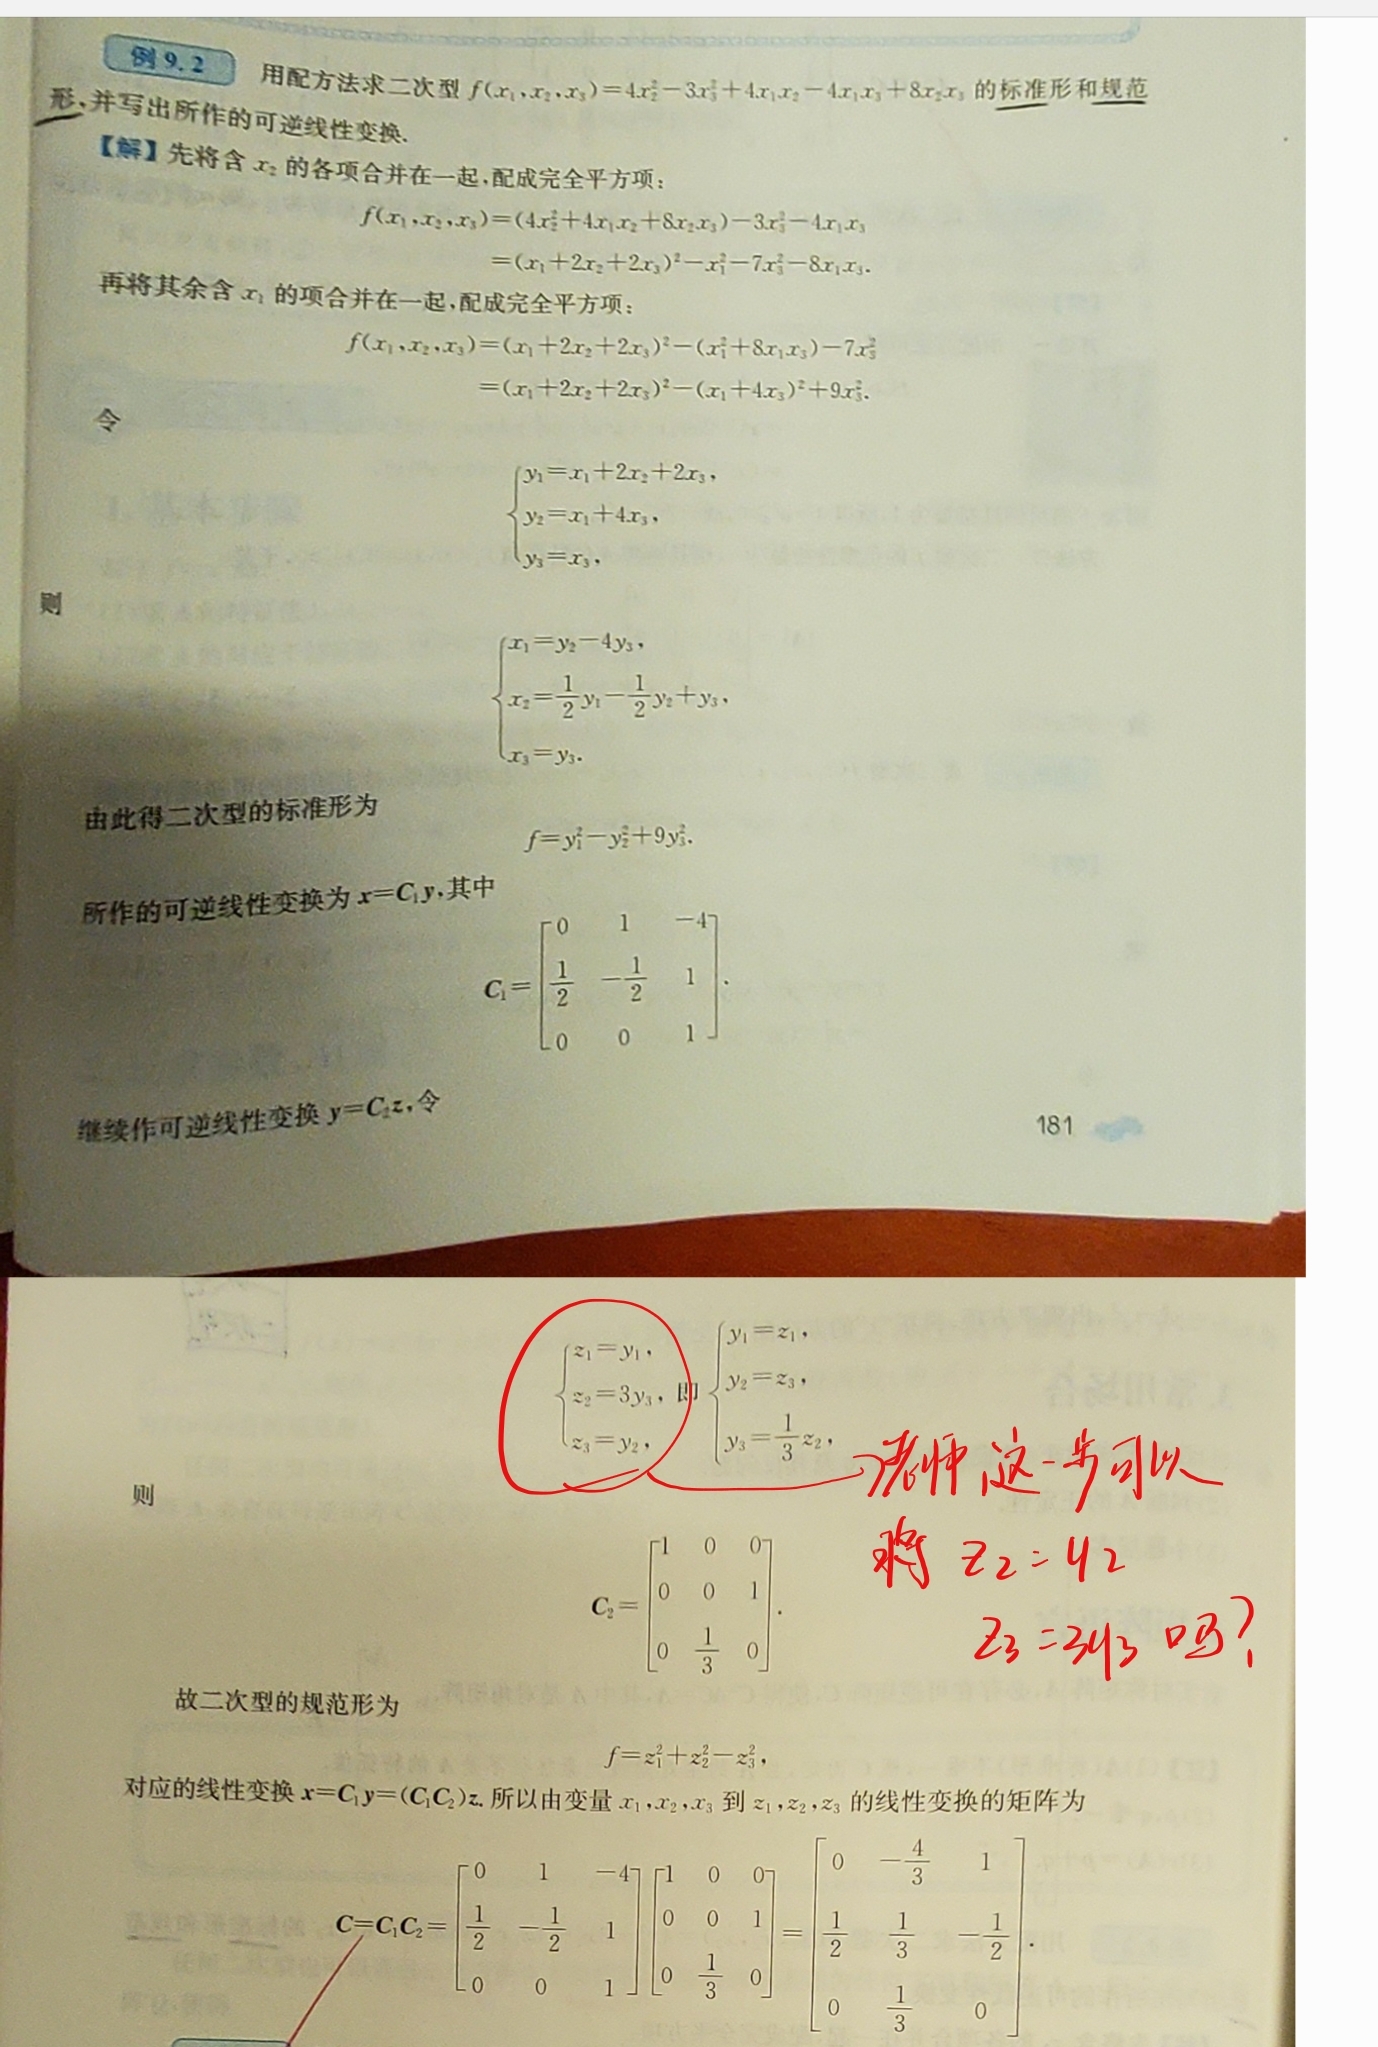 例9.2 用配方法求二次型 f(x₁,x₂,x₃)=4x₂²-3x₃²+4x₁x₂-4x₁x₃+8x₂x₃ 的标准形和规范
形,并写出所作的可逆线性变换.
【解】先将含 x₂ 的各项合并在一起,配成完全平方项:
f(x₁,x₂,x₃)=(4x₂²+4x₁x₂+8x₂x₃)-3x₃²-4x₁x₃
=(x₁+2x₂+2x₃)²-x₁²-7x₃²-8x₁x₃.
再将其余含 x₁ 的项合并在一起,配成完全平方项:
f(x₁,x₂,x₃)=(x₁+2x₂+2x₃)²-(x₁²+8x₁x₃)-7x₃²
=(x₁+2x₂+2x₃)²-(x₁+4x₃)²+9x₃².
令
y₁=x₁+2x₂+2x₃,
y₂=x₁+4x₃,
y₃=x₃,
则
x₁=y₂-4y₃,
x₂=1/2y₁-1/2y₂+y₃,
x₃=y₃.
由此得二次型的标准形为
f=y₁²-y₂²+9y₃².
所作的可逆线性变换为 x=C₁y,其中
C₁=[0 1 -4
1/2 -1/2 1
0 0 1].
继续作可逆线性变换 y=C₂z,令
181
z₁=y₁,
z₂=3y₃,
z₃=y₂,
即
y₁=z₁,
y₂=z₃,
y₃=1/3z₂,
老师 这一步可以
将 z₂=y₂
z₃=3y₃ 吗?
则
C₂=[1 0 0
0 0 1
0 1/3 0].
故二次型的规范形为
f=z₁²+z₂²-z₃²,
对应的线性变换 x=C₁y=(C₁C₂)z. 所以由变量 x₁,x₂,x₃ 到 z₁,z₂,z₃ 的线性变换的矩阵为
C=C₁C₂=[0 1 -4
1/2 -1/2 1
0 0 1][1 0 0
0 0 1
0 1/3 0]=[0 -4/3 1
1/2 1/3 -1/2
0 1/3 0].